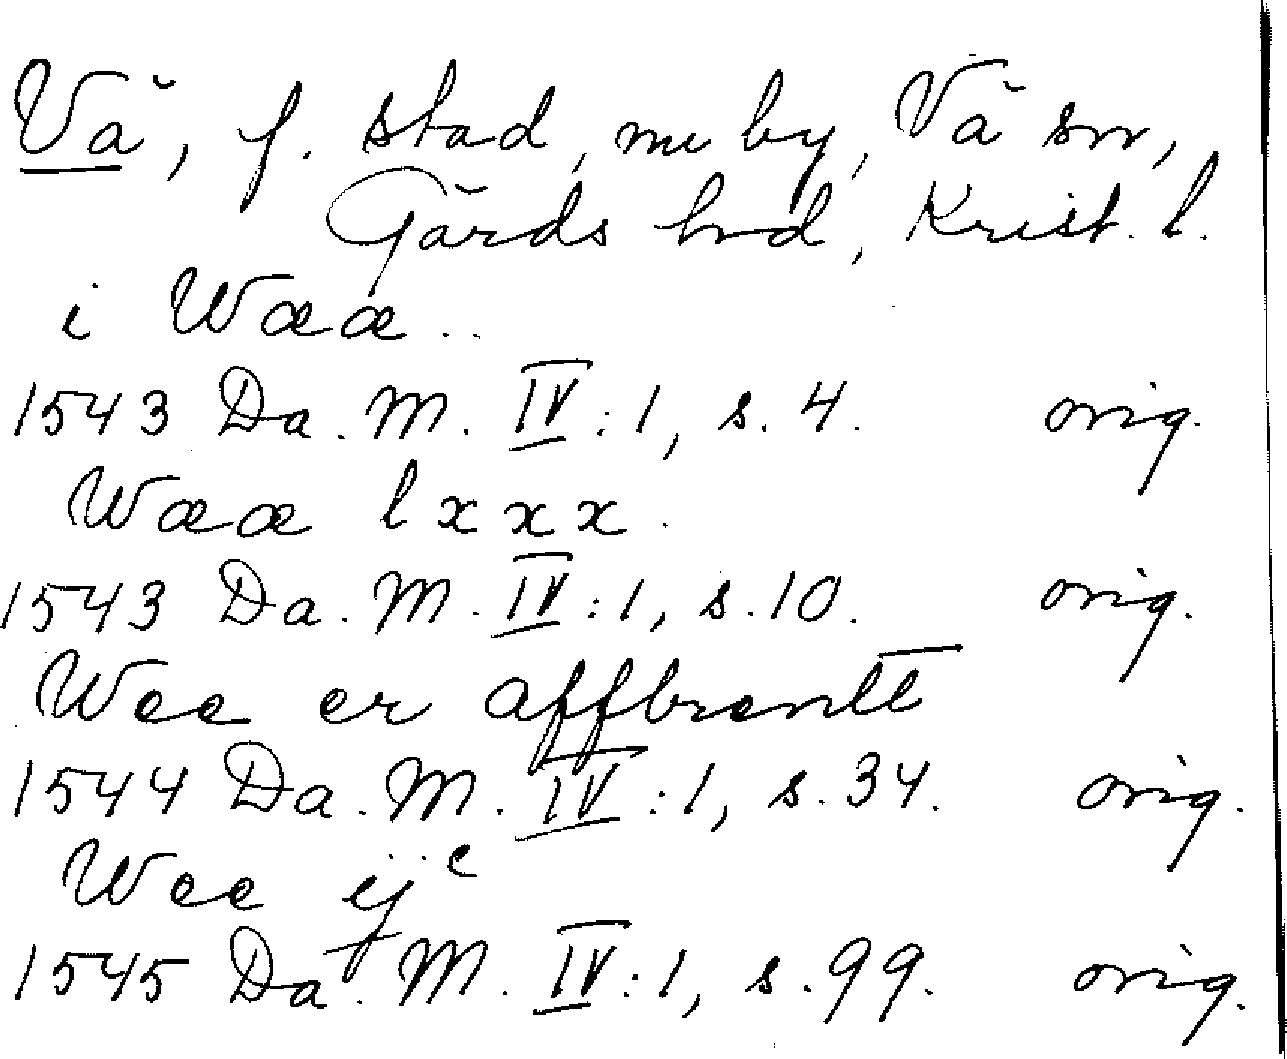 Vä, f. stad, nu by, Vä sn,
Gärds hrd, Krist. l.
i Wææ..
1543 Da. M. IV:1, s. 4. orig.
Wææ lxxx.
1543 Da. M. IV:1, s. 10. orig.
Wee er affbrentt
1544 Da. M. IV:1, s. 34. orig.
Wee ijc
1545 Da. M. IV:1, s. 99. orig.